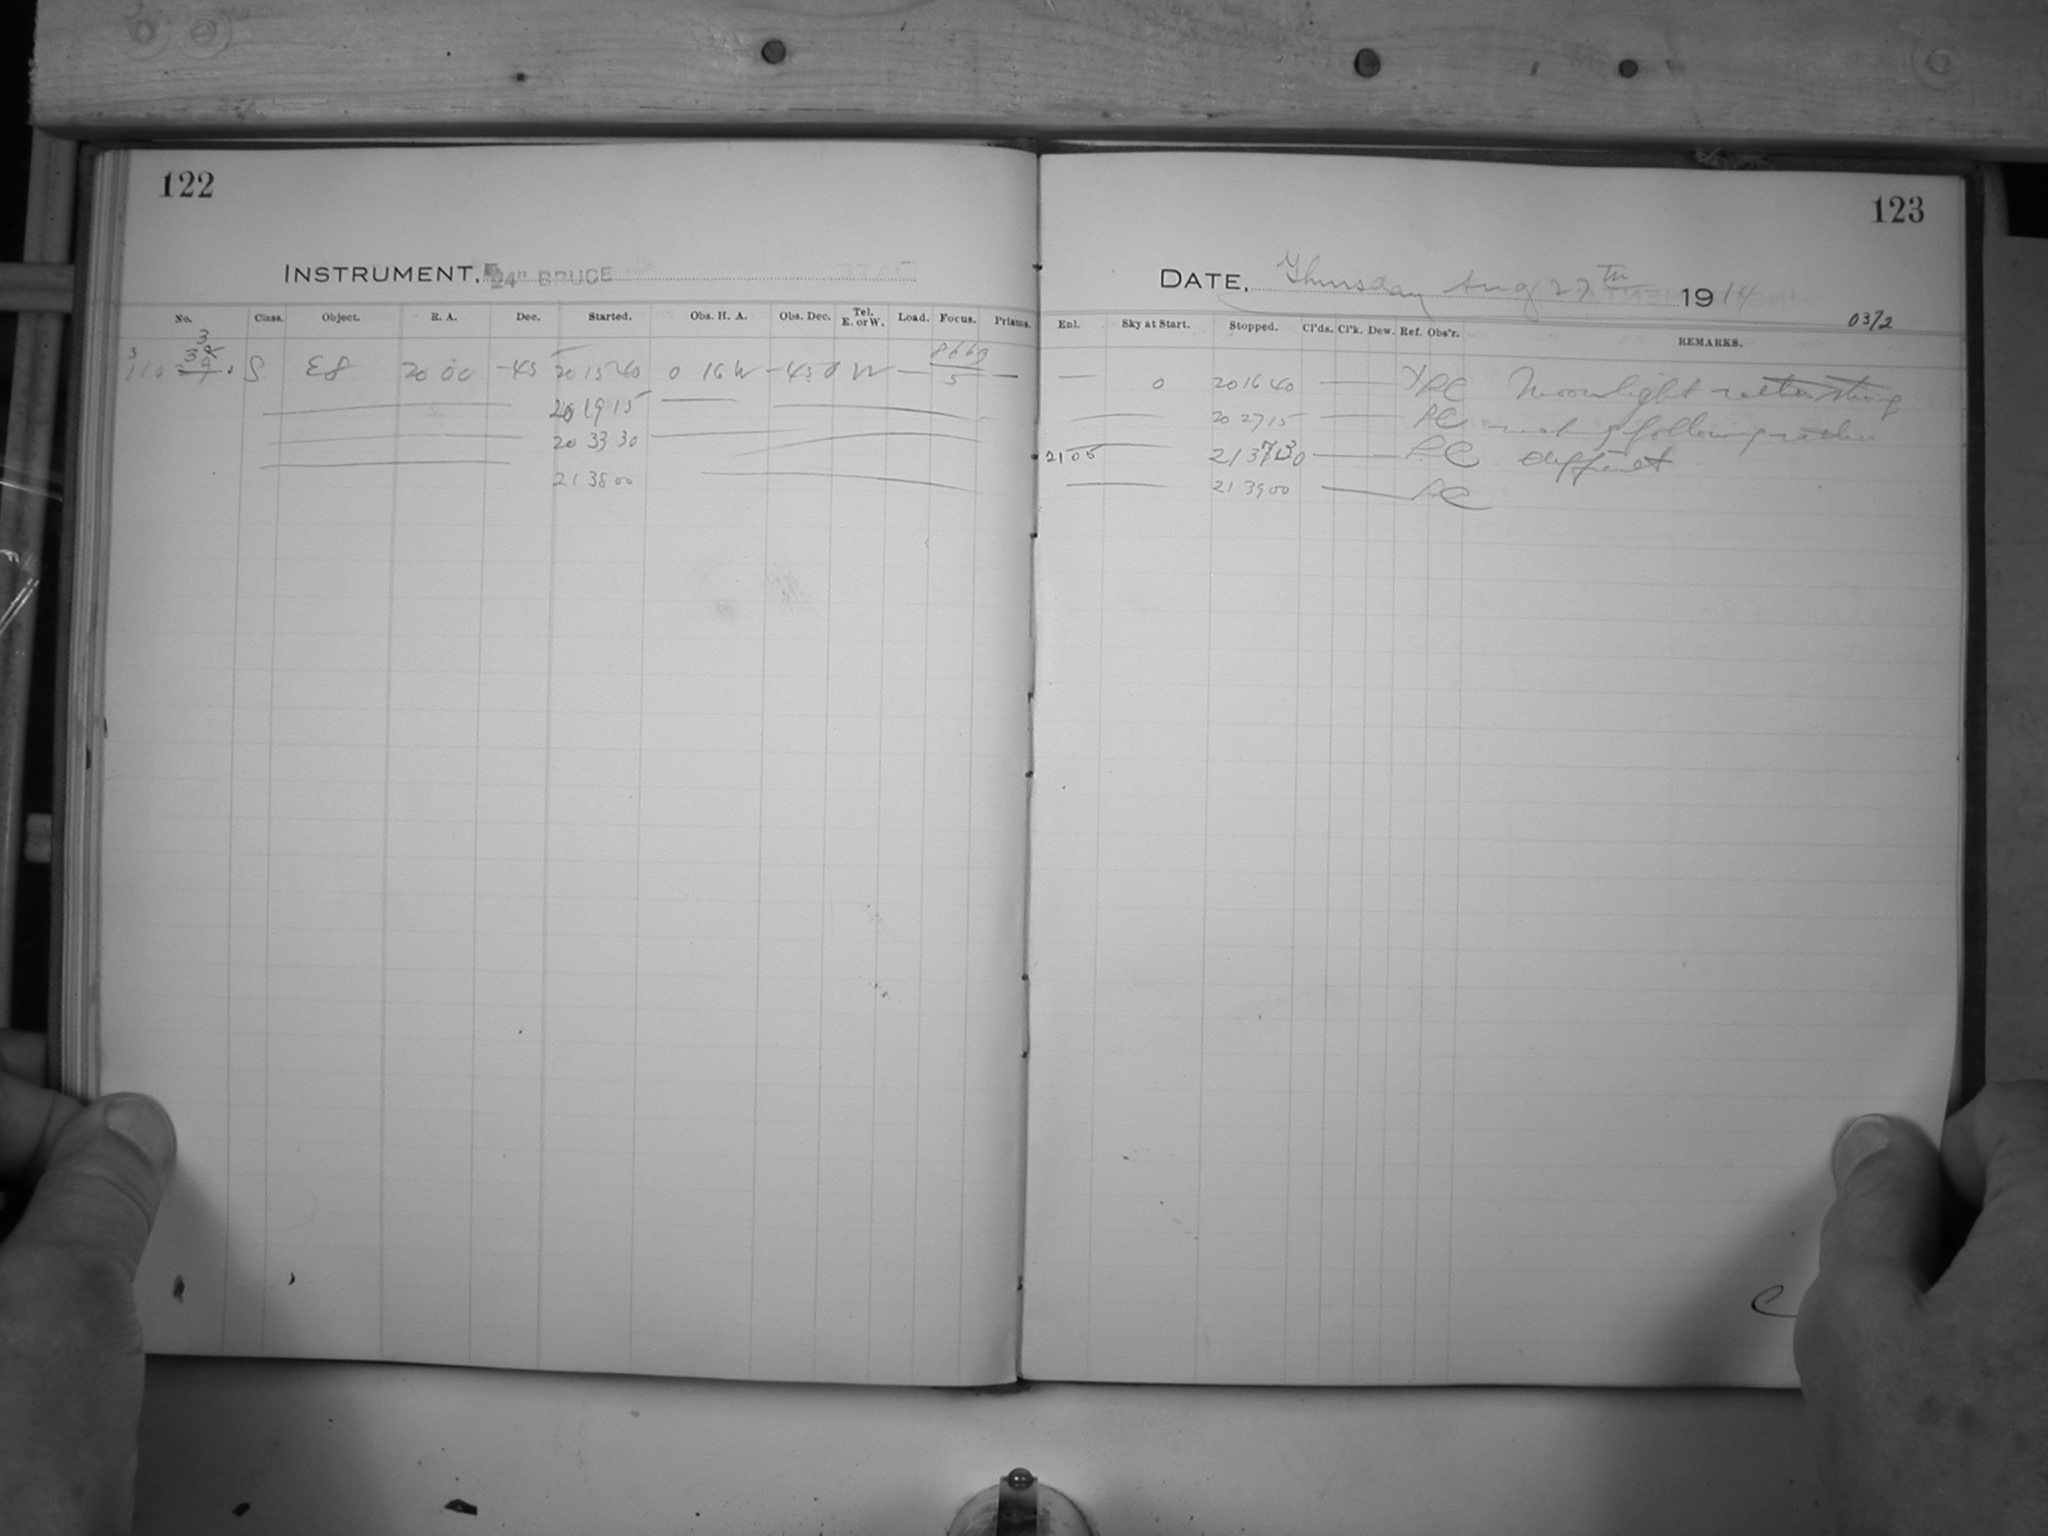 122
INSTRUMENT, 24" BRUCE
No. Class. Object. R. A. Dec. Started. Obs. H. A. Obs. Dec. Tel. E. or W. Load. Focus. Prisms.
S E8 20 00 -45 20 15 40 0 16 W -45 0 W — 8660 5 —
20 19 15
20 33 30
21 38 00
123
DATE, Thursday Aug 27th 1914
0372
Enl. Sky at Start. Stopped. Cl'ds. Cl'k. Dew. Ref. Obs'r. REMARKS.
— 0 20 16 40 — Moonlight rather strong
20 27 15 — making following rather
21 05 21 37 30 — difficult
21 39 00 —